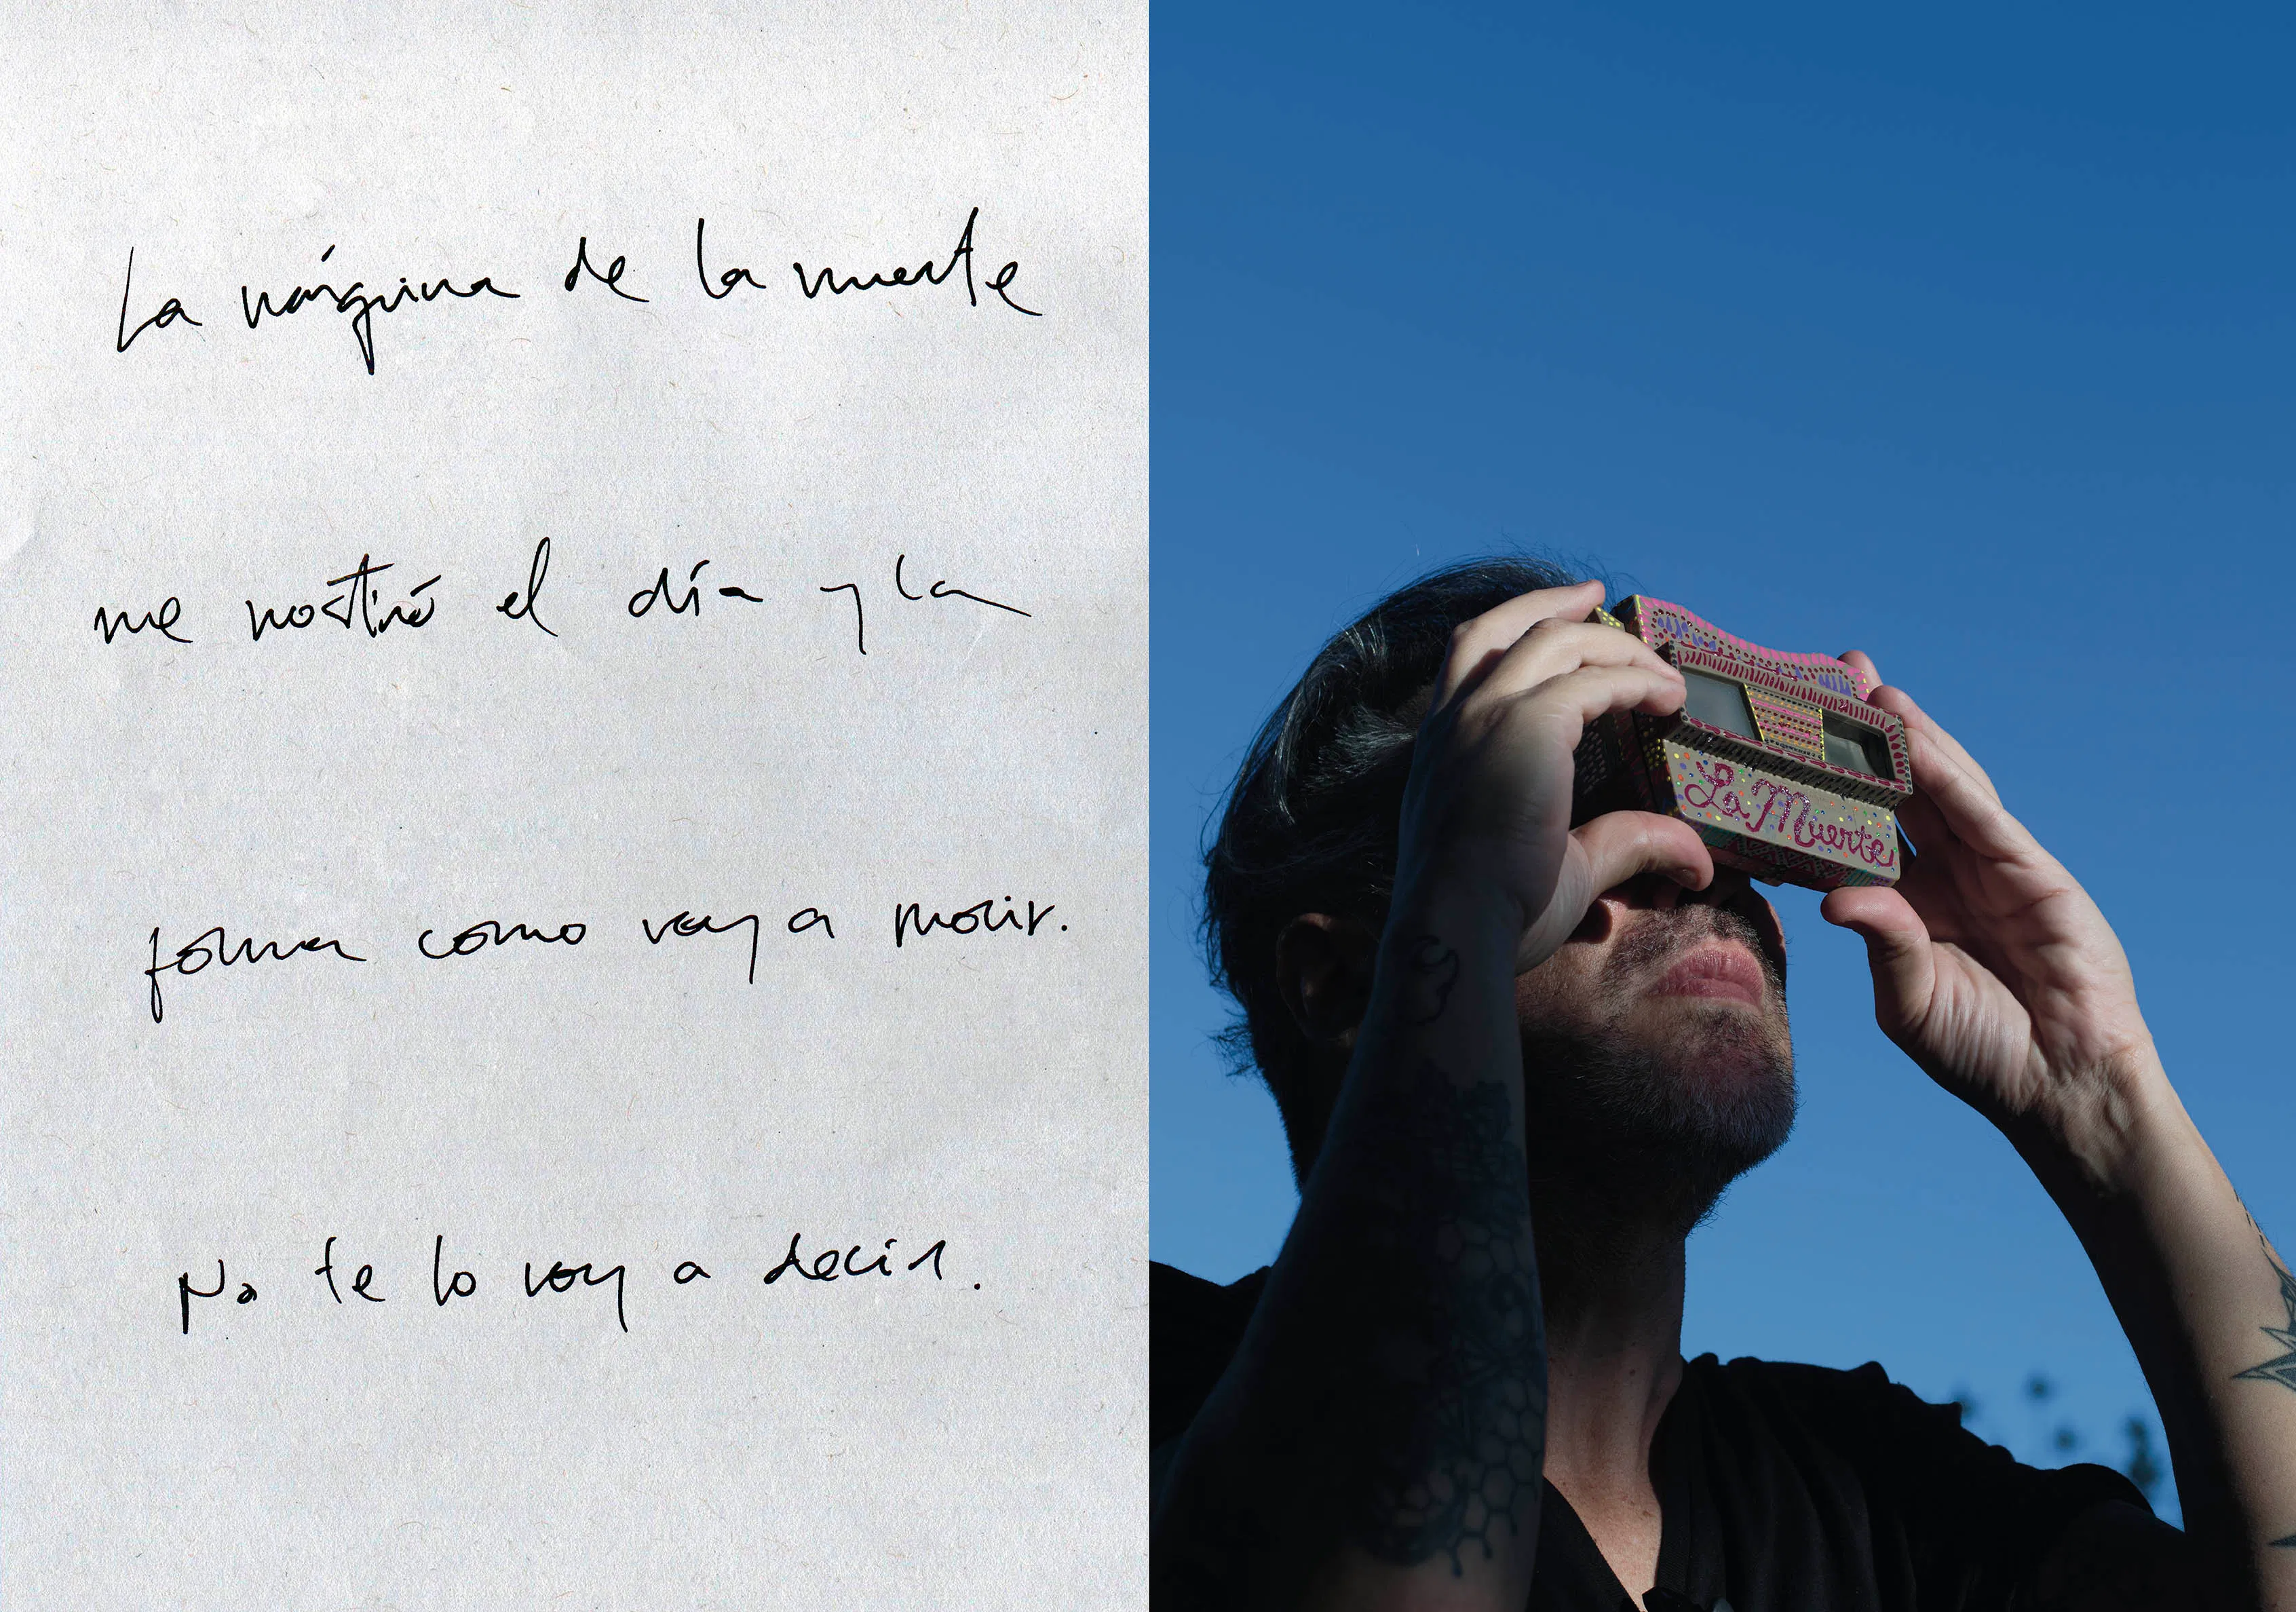 La máquina de la muerte
me mostró el día y la
forma como voy a morir.
No te lo voy a decir.
La Muerte